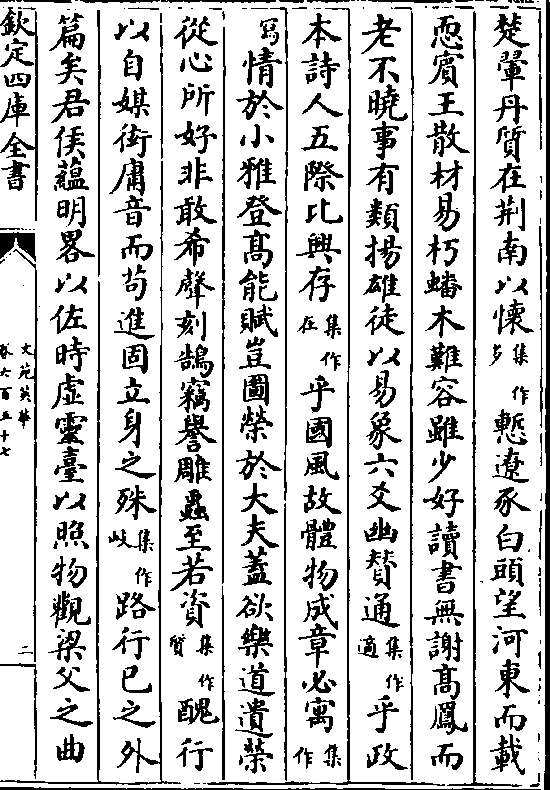 楚翬丹質在荆南以懷集作多慙遼豕白頭望河東而載
恧賔王散材易朽蟠木難容雖少好讀書無謝髙鳳而
老不曉事有類揚雄徒以易象六爻幽賛通集作適乎政
本詩人五際比興存集作在乎國風故體物成章必寓集作
寫情於小雅登髙能賦豈圖榮於大夫蓋欲樂道遺榮
從心所好非敢希聲刻鵠竊譽雕蟲至若資集作質醜行
以自媒衒庸音而苟進固立身之殊集作岐路行已之外
篇矣君侯藴明畧以佐時虚靈臺以照物觀梁父之曲
欽定四庫全書
文苑英華
卷六百五十七
二